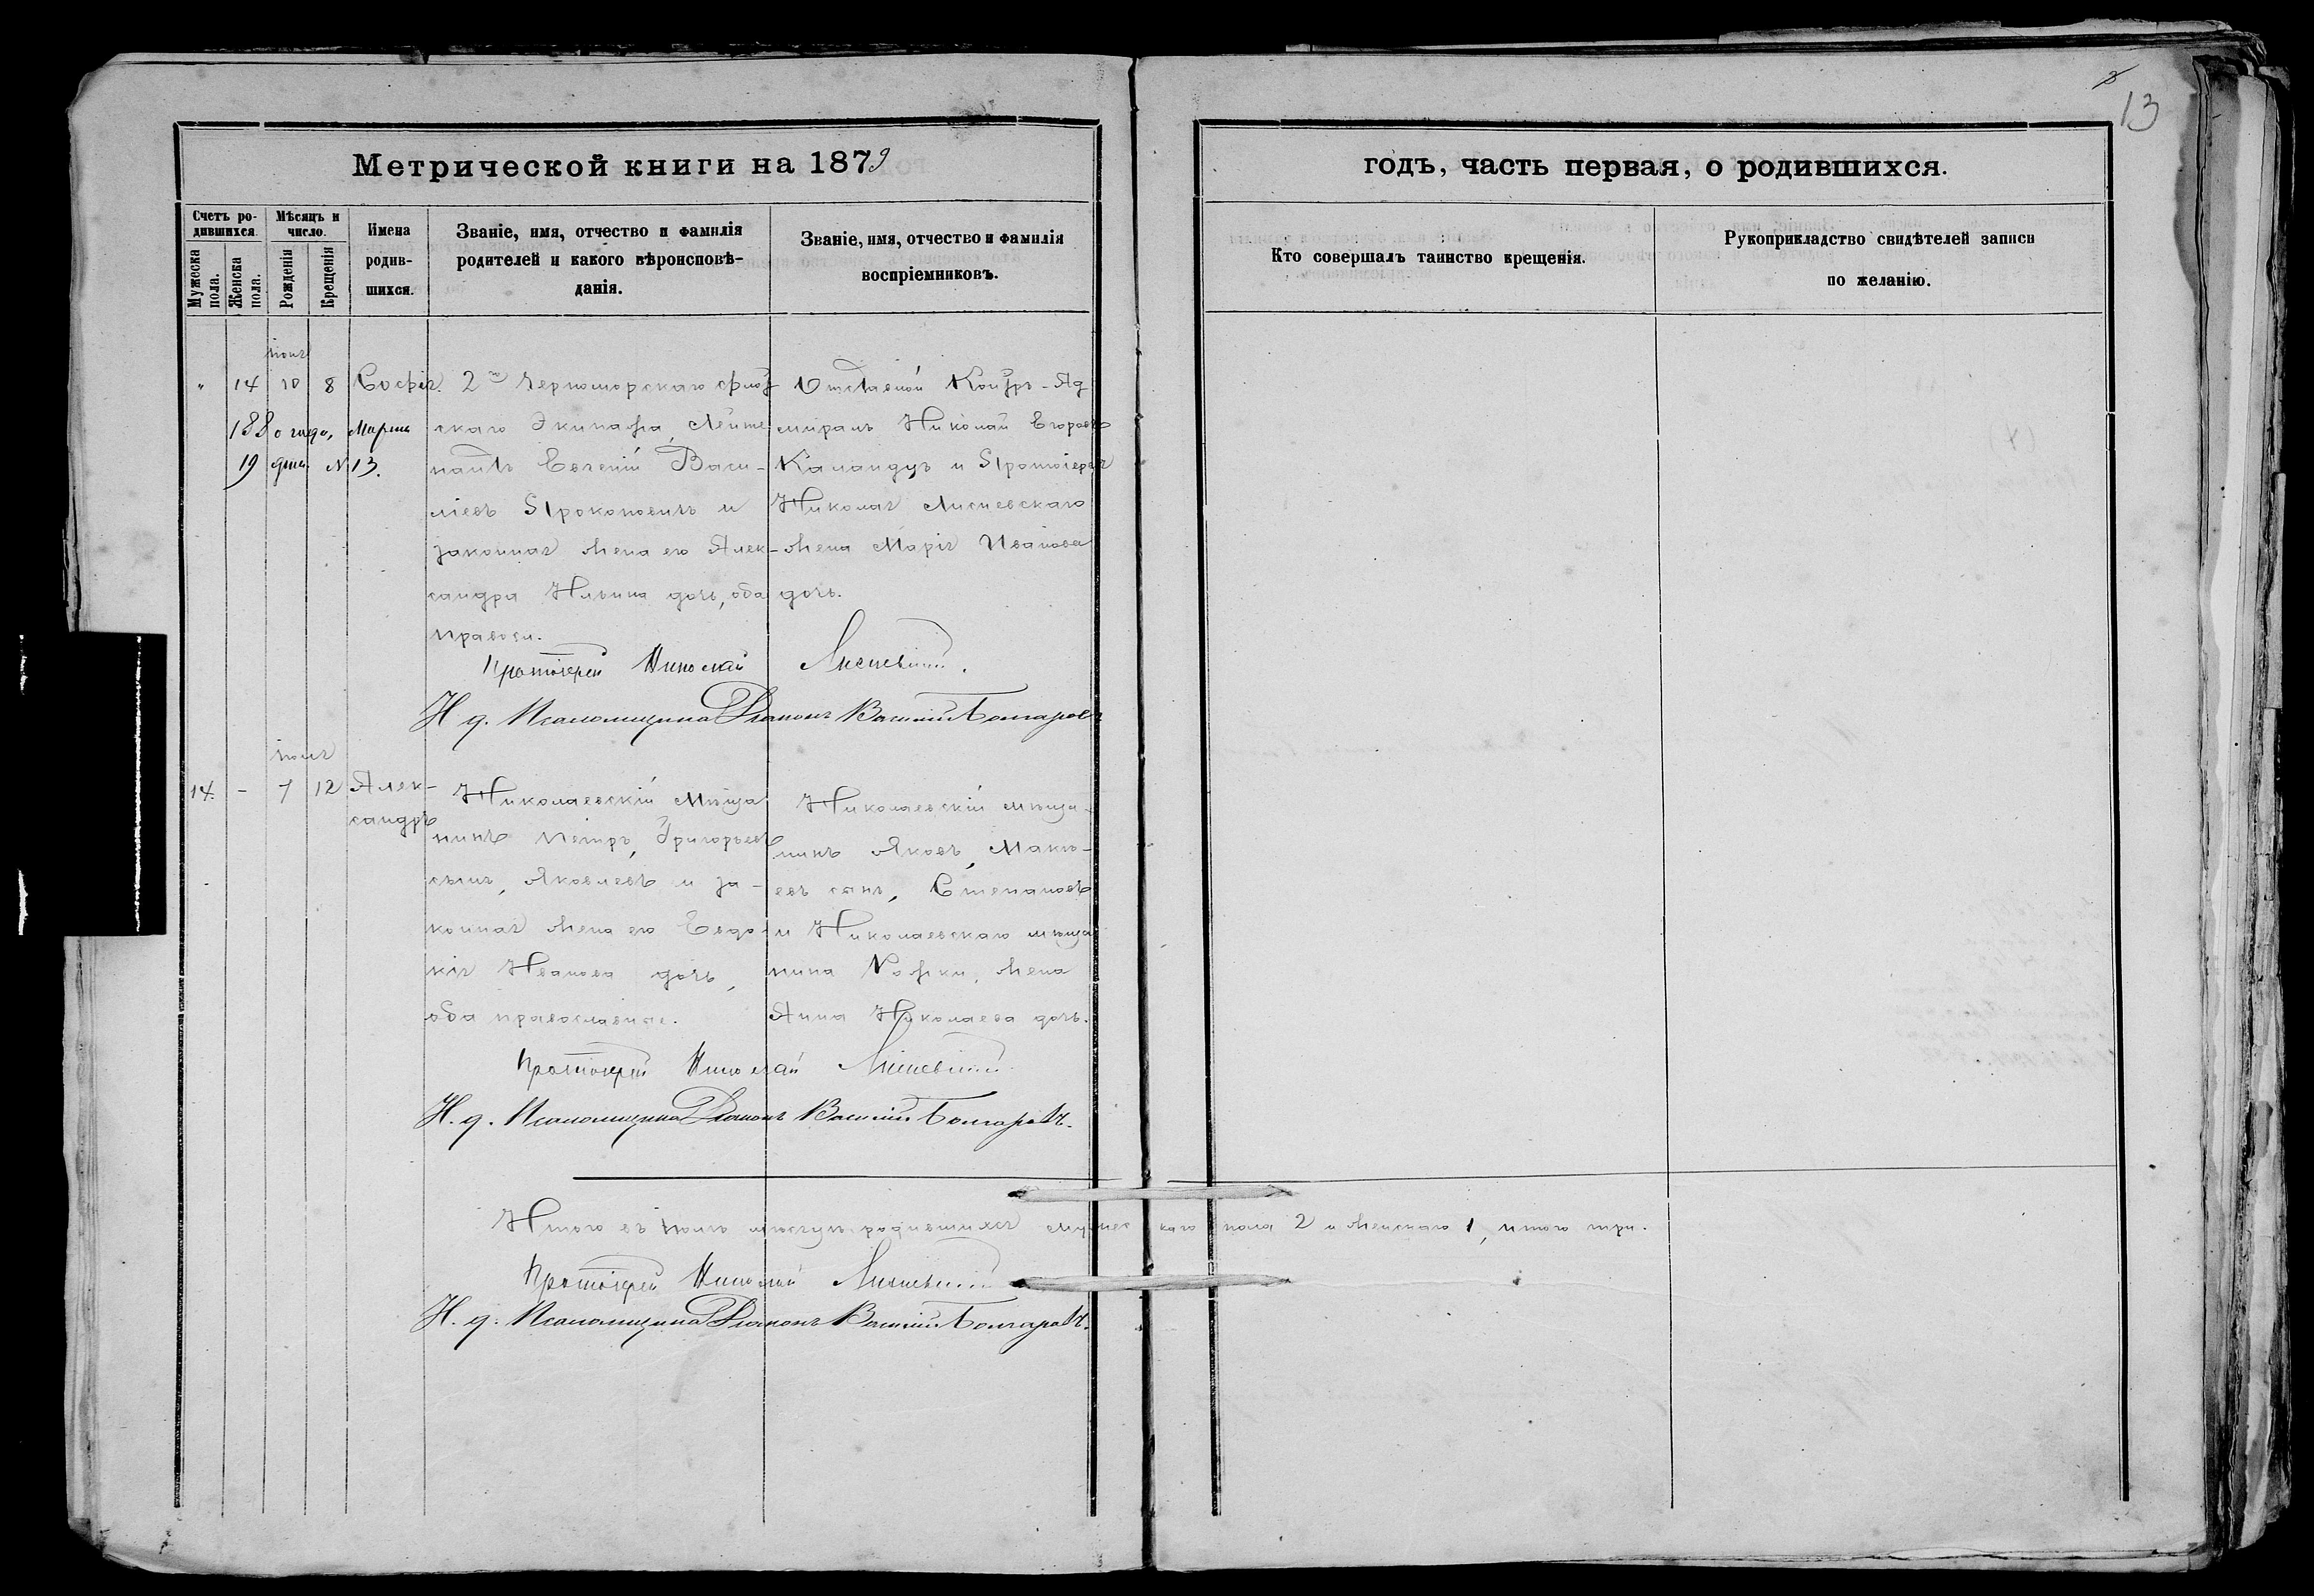 13
Метрической книги на 1879
годъ, часть первая, о родившихся.
Счетъ ро-
дившихся.
Мужеска пола.
Женска пола.
Мѣсяцъ и
число.
Рожденія
Крещенія
Имена
родив-
шихся.
Званіе, имя, отчество и фамилія
родителей и какого вѣроисповѣ-
данія.
Званіе, имя, отчество и фамилія
воспріемниковъ.
Кто совершалъ таинство крещенія.
Рукоприкладство свидѣтелей записи
по желанію.
" 14 10 8 Софія.
1880 года, Марта
19 дня № 13.
2го Черноморскаго флот-
скаго Экипажа, Лейте-
нантъ Евгеній Васи-
ліевъ Прокоповичъ и
законная жена его Алек-
сандра Ильина дочь, оба
правосл.
Отставной Контръ-Ад-
миралъ Николай Егоровъ
Каландусъ и Протоіерея
Николая Лисневскаго
жена Марія Иванова
дочь.
Протоіерей Николай
И. д. Псаломщика Діаконъ Василій Болгаровъ
14. - 7 12 Алек-
сандръ
Николаевскій Мѣща-
нинъ Петръ, Григорьевъ
сынъ, Яковлевъ и за-
конная жена его Евдо-
кія Иванова дочь,
оба православные.
Николаевскій мѣща-
нинъ Яковъ,
евъ сынъ, Степановъ
и Николаевскаго мѣща-
нина жена
Анна Николаева дочь.
Протоіерей Николай
И. д. Псаломщика Діаконъ Василій Болгаровъ.
Итого въ мѣсяцѣ родившихся мужескаго пола 2 и женскаго 1, итого три.
Протоіерей Николай
И. д. Псаломщика Діаконъ Василій Болгаровъ.